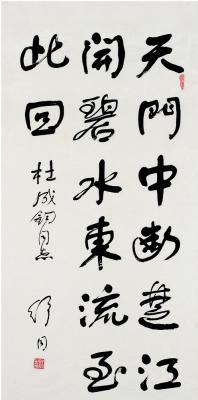 天門中斷楚江
開碧水東流至
此回
杜成鈞同志
舒同